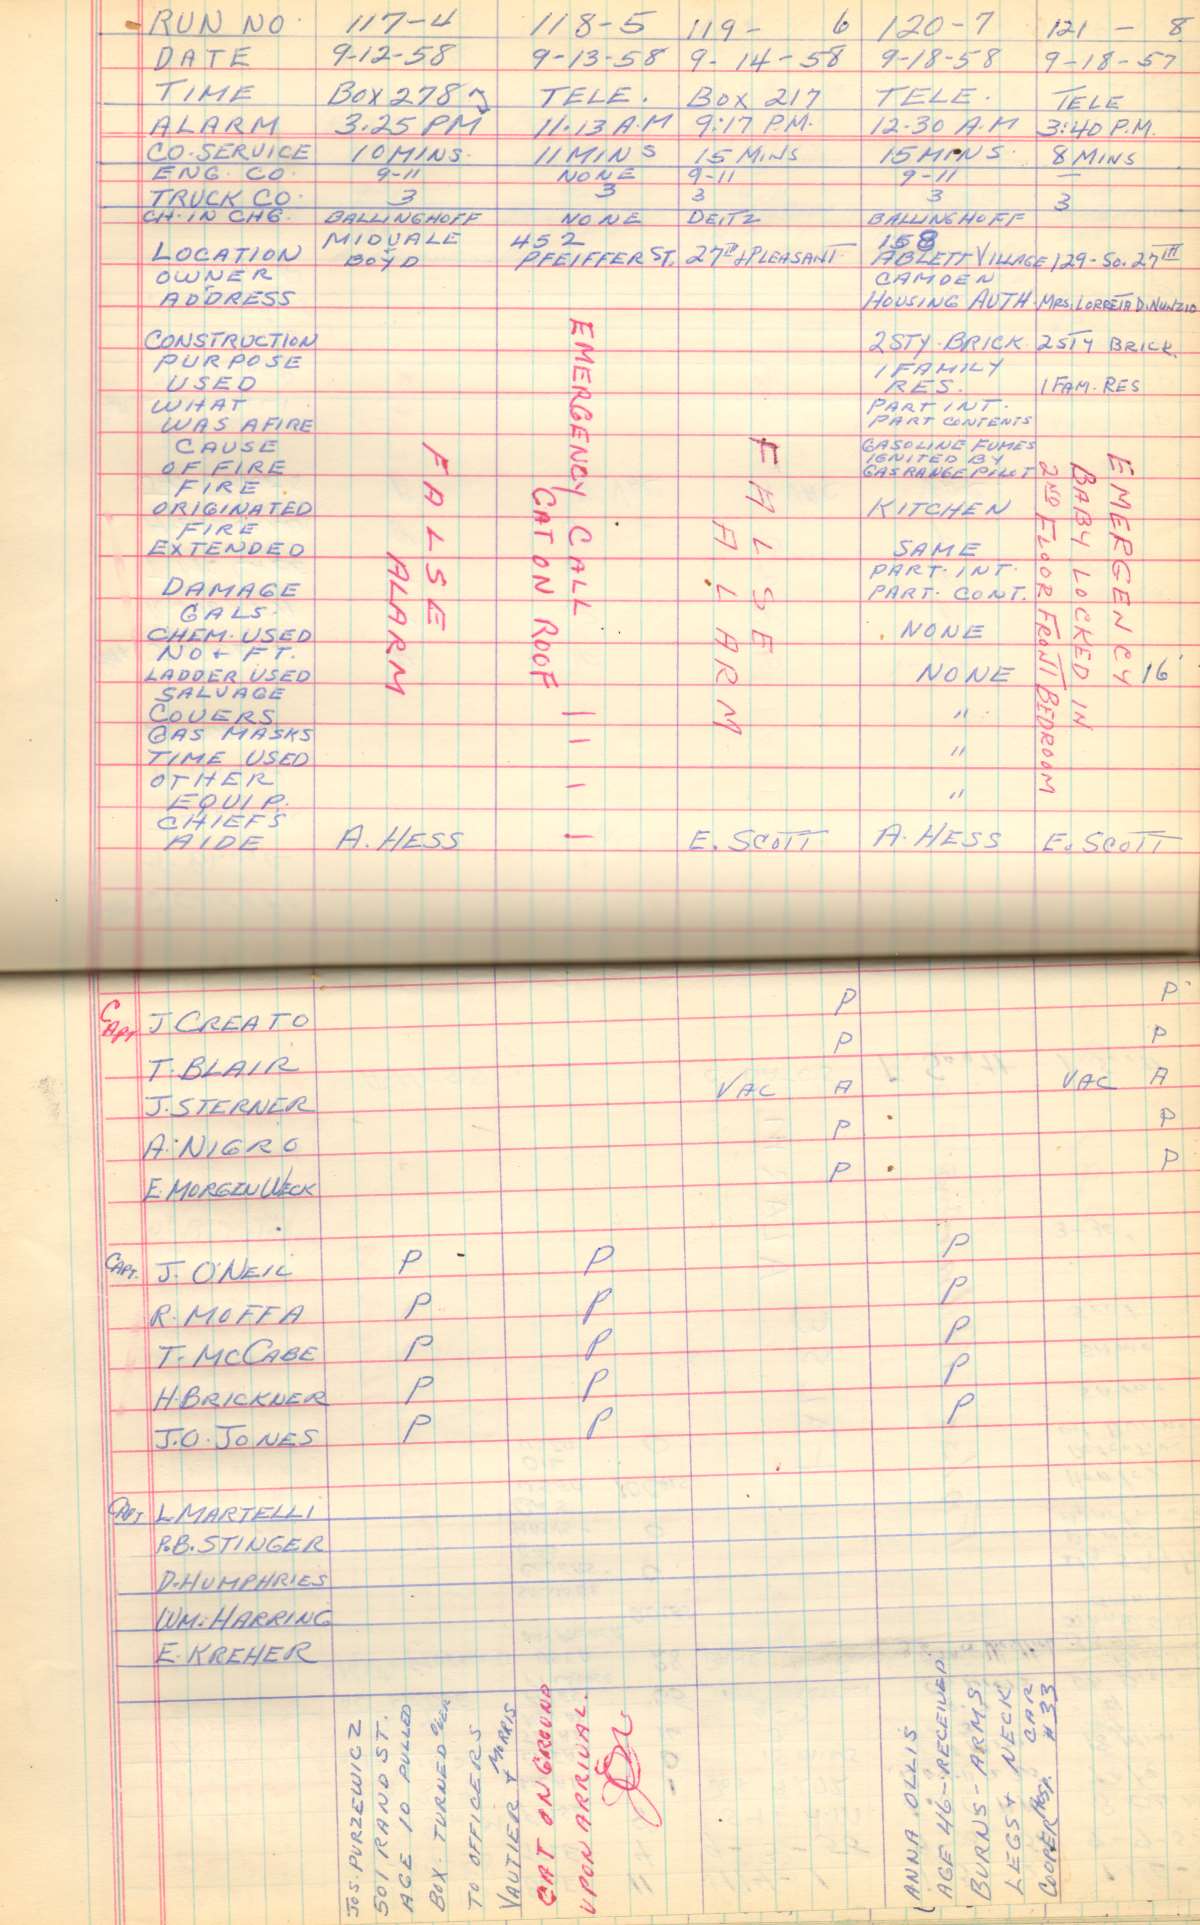 RUN NO. 117-4 118-5 119- 6 120-7 121 - 8
DATE 9-12-58 9-13-58 9-14-58 9-18-58 9-18-57
TIME BOX 278 TELE. BOX 217 TELE. TELE
ALARM 3.25 PM 11.13 A.M 9:17 P.M. 12.30 A.M 3:40 P.M.
CO.SERVICE 10 MINS. 11 MINS 15 MINS 15 MINS. 8 MINS
ENG. CO. 9-11 NONE 9-11 9-11 —
TRUCK CO. 3 3 3 3 3
CH.IN CHG. BALLINGHOFF NONE DEITZ BALLINGHOFF
MIDVALE 452 158
LOCATION BOYD PFEIFFER ST. 27TH & PLEASANT ABLETT VILLAGE 129-SO. 27TH
OWNER CAMDEN
ADDRESS HOUSING AUTH. MRS. LORRETA D.NUNZIO
CONSTRUCTION 2 STY. BRICK 2 STY BRICK.
PURPOSE 1 FAMILY
USED RES. 1 FAM. RES
WHAT PART INT.
WAS AFIRE PART CONTENTS
CAUSE GASOLINE FUMES
OF FIRE IGNITED BY
GAS RANGE PILOT
FIRE
ORIGINATED KITCHEN
FIRE
EXTENDED SAME
PART. INT.
DAMAGE PART. CONT.
GALS.
CHEM. USED NONE
NO & FT.
LADDER USED NONE 16'
SALVAGE
COVERS "
GAS MASKS
TIME USED "
OTHER
EQUIP. "
CHIEFS
AIDE A. HESS E. SCOTT A. HESS E. SCOTT
FALSE
ALARM
EMERGENCY CALL
CAT ON ROOF
FALSE
ALARM
EMERGENCY
BABY LOCKED IN
2ND FLOOR FRONT BEDROOM
CAPT J CREATO P P
T. BLAIR P P
J. STERNER VAC A VAC A
A. NIGRO P P
E. MORGINWECK P P
CAPT. J. O'NEIL P P P
R. MOFFA P P P
T. McCABE P P P
H. BRICKNER P P P
J.O. JONES P P P
CAPT L MARTELLI
P.B. STINGER
D. HUMPHRIES
WM. HARRING
E. KREHER
JOS. PURZEWICZ
501 RAND ST.
AGE 10 PULLED
BOX. TURNED OVER
TO OFFICERS
VAUTIER & MORRIS
CAT ON GROUND
UPON ARRIVAL.
ANNA OLLIS
AGE 46 - RECEIVED
BURNS - ARMS
LEGS & NECK
COOPER HOSP. CAR # 33